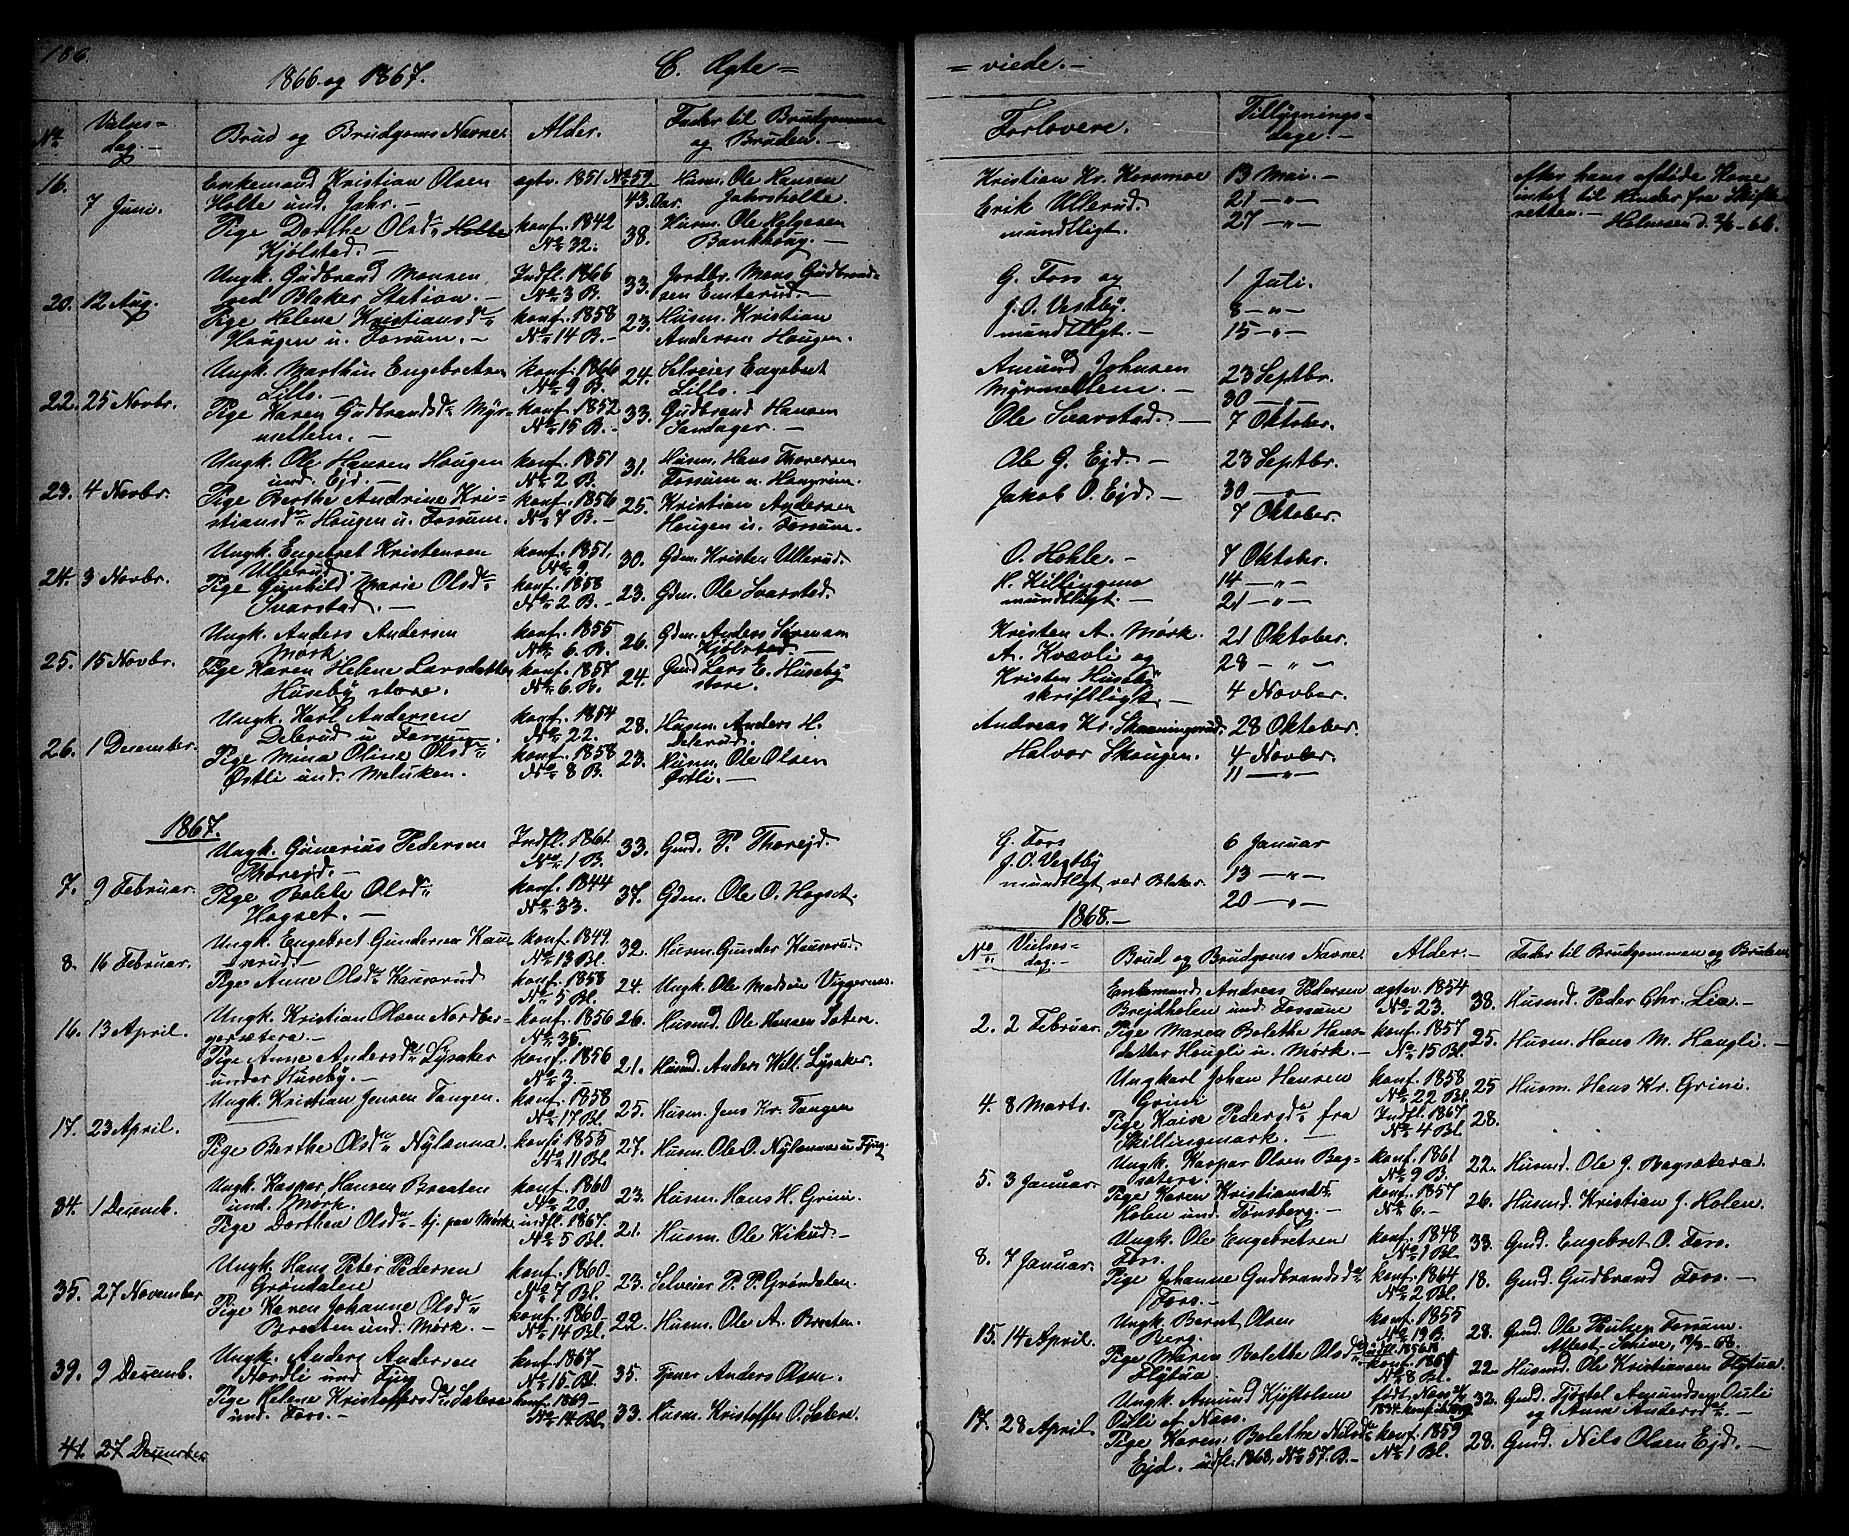 186.
1866 og 1867. C. Ægte =
No Vielses= dag.- Brud og Brudgoms Navne. Alder. Fader til Brudgommen og Bruden.-
16. 7 Juni. Enkemand Kristian Olsen Holte und. Jahr.- agtv. 1851 No 59 43. Aar. Husm. Ole Hansen Jahrsholte.
Pige Dorthe Olsdr Holte Kjølstad.- konf. 1842 No 32. 38. Husm. Ole Helgesen Bankhaug.-
20. 12 Aug. Ungk. Gudbrand Monsen ved Blaker Station.- Indfl. 1866 No 3 B. 33. Jordbr. Mons Gudbrandsen Emterud.-
Pige Helene Kristiansdr Hougen u. Fossum.- konf. 1858 No 14 B.- 23. Husm. Kristian Andersen Hougen.
22. 25 Novbr. Ungk. Marthin Engebretsen Lillo.- konf. 1866 No 9 B. 24. Selveier Engebret Lillo.-
Pige Karen Gudbrandsdr Myrmettem.- konf. 1852 No 15 B.- 33. Gudbrand Hansen Sandager.-
23. 4 Novbr. Ungk. Ole Hansen Hougen und. Ejd.- konf. 1851 No 2 B. 31. Husm. Hans Thoresen Fossum u.
Pige Berthe Andrine Kristiansdr Hougen u. Fossum. konf. 1856 No 7 B.- 25. Kristian Andersen Hougen u. Fossum.-
24. 3 Novbr. Ungk. Engebret Kristensen Ullerud.- konf. 1851. No 9. 30. Gdm. Kristen Ullerud.
Pige Gunhild Marie Olsdr Svarstad.- konf. 1858 No 2 B.- 23. Gdm. Ole Svarstad.
25. 15 Novbr. Ungk. Anders Andersen Mørk. konf. 1855 No 6. B. 26. Gdm. Anders Sørensen Kjølstad.-
Pige Karen Helene Larsdatter Huseby store. konf. 1857 No 6. B. 24. Gmd Lars E. Huseby store.
26. 1 December. Ungk. Karl Andersen Delerud u Fossum. konf. 1854 No 22. 28. Husm. Anders H. Delerud.
Pige Mina Oline Olsdr Østli und. konf. 1858 No 8 B. 23. Husm. Ole Olsen Østli.-
1867.
7. 9 Februar. Ungk. Gunerius Pedersen Thorejd.- Indfl. 1861. No 1 B. 33. Gmd. P. Thorejd.
Pige Bolete Olsdr Hogset.- konf. 1844 No 33. 37. Gdm. Ole O. Hogset.
8. 16 Februar. Ungk. Engebret Gundersen Kauserud. konf. 1849. No 13 Bl. 32. Husm. Gunder Kauserud.
Pige Anne Olsdr Kauserud konf. 1858 No 5 Bl. 24. Ungk. Ole Madsen Viggernæs.
16. 13 April. Ungk. Kristian Olsen Nordbergersætera.- konf. 1856 No 36. 26. Husmd. Ole Hansen Sætera.
Pige Anne Andersdr Lysaker under Huseby.- konf. 1856 No 3.- 21. Husmd. Anders Will. Lysaker.
17. 23 April. Ungk. Kristian Jensen Tangen. konf. 1858 No 17 Bl. 25. Husm. Jens Kr. Tangen
Pige Berthe Olsdr Nylænna. konf. 1855 No 11 Bl. 27. Husm. Ole O. Nylænna u Fjug
34. 1 Decemb. Ungk. Kaspar Hansen Braaten und. Mørk. konf. 1860 No 20. 23. Husm. Hans H. Grini.
Pige Dorthea Olsdr tj. paa Mørk. indfl. 1867. No 5 Bl. 21. Husm. Ole
35. 27 November Ungk. Hans Peter Pedersen Grøndalen konf. 1860 No 7 Bl. 23. Selveier P. P. Grøndalen.
Pige Karen Johanne Olsdr Braaten und. Mørk.- konf. 1860 No 14 Bl. 22. Husm. Ole A. Braaten.
39. 9 Decemb. Ungk. Anders Andersen Nordli und Fjug konf. 1867- No 15. Bl. 35. Tjener Anders Olsen.
Pige Helene Kristoffersdr Sætera und. Foss.- konf. 1869- No 14 Bl. 33. Husm. Kristoffer O. Sætera.
41. 27 December
= viede.-
Forlovere. Tillysnings= dage.-
Kristian Kr. Korsmoe Erik Ullerud. mundtligt. 13 Mai.- 21 -"- 27 -"-
efter hans afdøde Kone intet til Hinder fra Skifteretten.- Holmsen d. 2/6-66.
G. Foss og J. O. Vestby. mundtligt.- 1 Juli. 8 -"- 15 -"-
Amund Johnsen Myrmettem.- Ole Svarstad.- 23 Septbr. 30 -"- 7 Oktober.
Ole G. Ejd.- Jakob O. Ejd.- 23 Septbr. 30 -"- 7 Oktober.
O. Hehle.- H. Killingmo mundtligt.- 7 Oktober. 14 -"- 21 -"-
Kristen A. Mørk. A. Kvævli og Kristen Huseby skriftligt.- 21 Oktober. 28 -"- 4 Novber.
Andreas Kr. Skanningsrud. Halvor Skougen. 28 Oktober. 4 Novber. 11 -"-
G. Foss J. O. Vestby mundtligt ved Blaker. 6 Januar 13 -"- 20 -"-
1868.-
No Vielses= dag.- Brud og Brudgoms Navne Alder.- Fader til Brudgommen og Bruden
2. 2 Februar. Enkemand Andreas Pedersen Brejdholen und. Fossum agtv. 1854 No 23. 38. Husmd. Peder Chr. Lia.-
Pige Maren Bolethe Hansdatter Haugli u. Mørk.- konf. 1857. No 15 Bl. 25. Husm. Hans M. Haugli.-
4. 8 Marts. Ungkarl Johan Hansen Grini konf. 1858 No 22 Bl. 25 Husm. Hans Kr. Grini.
Pige Kaisa Pedersdr fra Skillingmark.- Indfl. 1867 No 4 Bl. 28.
5. 3 Januar. Ungk. Kaspar Olsen Bagsætera. konf. 1861 No 9 B. 22. Husmd. Ole J. Bagsætera.
Pige Karen Kristiansdr Holen und. Tønsberg.- konf. 1857 No 6.- 26. Husmd. Kristian J. Holen.
8. 7 Januar. Ungk. Ole Engebretsen Foss. konf. 1848 No 1 Bl. 33. Gmd. Engebret O. Foss.
Pige Johanne Gudbrandsdr Foss.- konf. 1864 No 2 Bl. 18. Gmd. Gudbrand Foss.-
15. 14 April. Ungk. Bernt Olsen Berg. konf. 1855 No 19 B. 28. Gmd. Ole Paulsen Fossum. Attest.
Pige Maren Bolette Olsdr Flytua. No 8 Bl. 22. Husmd. Ole Kristiansen Flytua.
17. 28 April. Ungk. Amund Kjøstolsen Oulli af Næss. født Næss 1834. 32. Gmd. Kjøstel Amundsen Oulli og Anne Andersdr.-
Pige Karen Bolethe Nilsdr Ejd. indfl. 1863, No 57. B.- konf. 1859 No 1 Bl. 28. Gmd. Nils Olsen Ejd.-